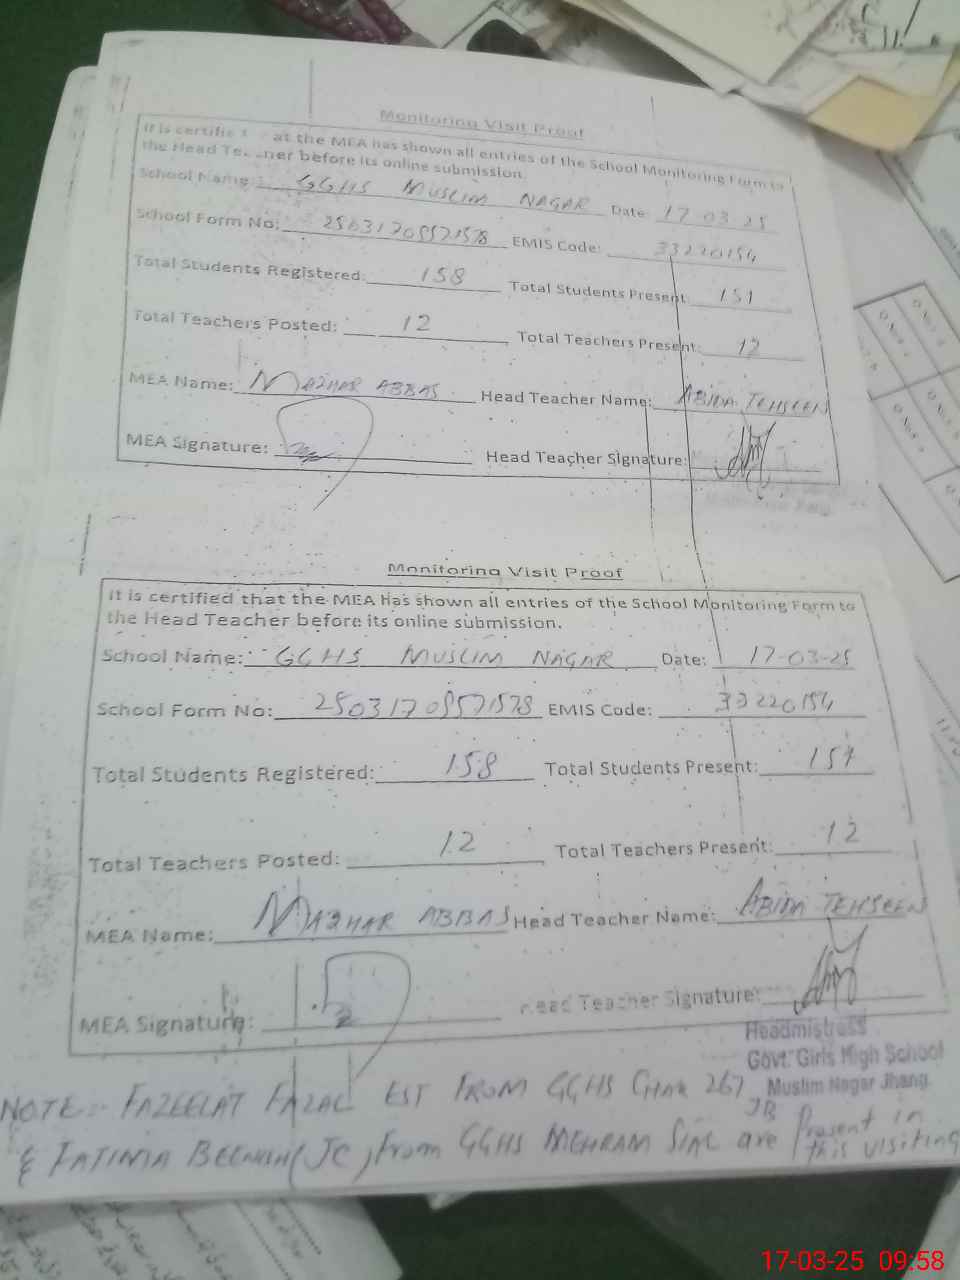 Monitoring Visit Proof
It is certifie at the MEA has shown all entries of the School Monitoring Form to
the Head Te ner before its online submission.
School Name: GGHS MUSLIM NAGAR Date: 17-03-25
School Form No: 25031709571578 EMIS Code: 33220154
Total Students Registered: 158 Total Students Present: 151
Total Teachers Posted: 12 Total Teachers Present: 12
MEA Name: MAZHAR ABBAS Head Teacher Name: ABIDA TEHSEEN
MEA Signature: Head Teacher Signature:
Monitoring Visit Proof
It is certified that the MEA Has shown all entries of the School Monitoring Form to
the Head Teacher before its online submission.
School Name: GGHS MUSLIM NAGAR Date: 17-03-25
School Form No: 25031709571578 EMIS Code: 33220154
Total Students Registered: 158 Total Students Present: 151
Total Teachers Posted: 12 Total Teachers Present: 12
MEA Name: MAZHAR ABBAS Head Teacher Name: ABIDA TEHSEEN
MEA Signature: Head Teacher Signature:
Headmistress
Govt. Girls High School
Muslim Nagar Jhang
NOTE:- FAZEELAT FAZAL EST FROM GGHS CHAK 267 JB
& FATIMA BEENISH (JC) From GGHS MEHRAM SIAL are Present in this visiting
17-03-25 09:58